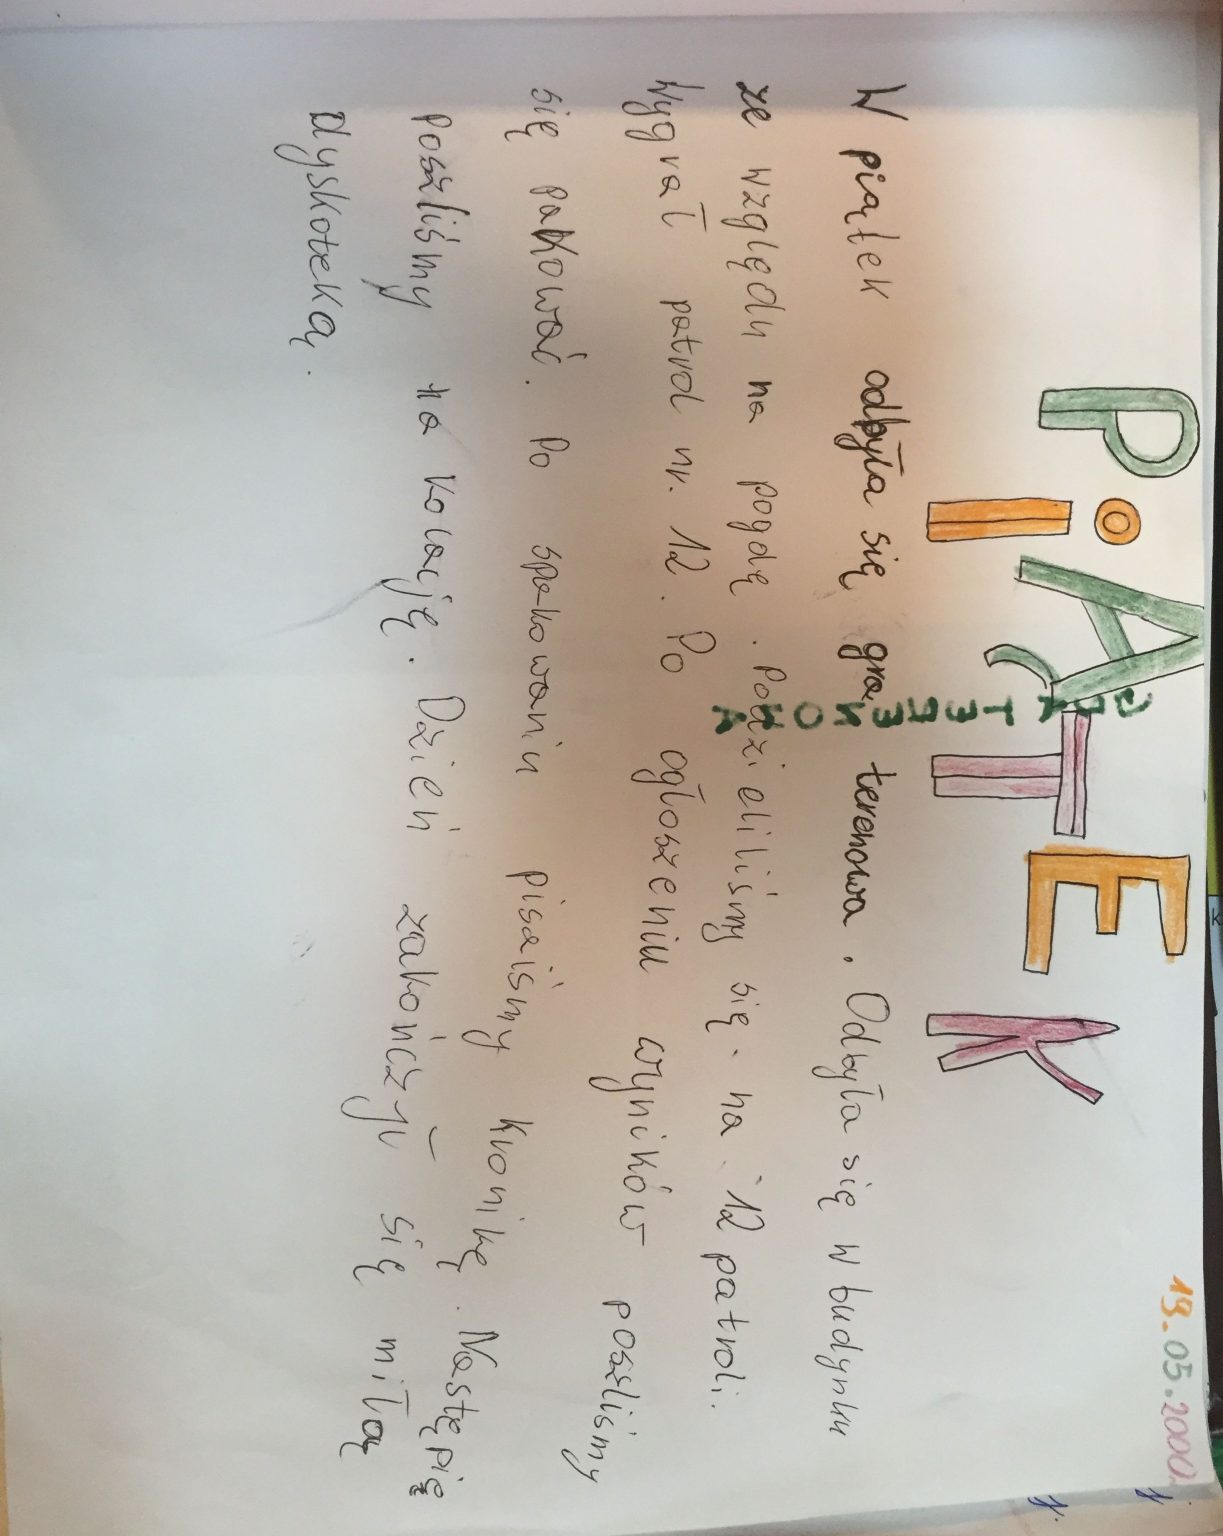 19.05.2000r.
PiĄTEK
GRA TERENOWA
W piątek odbyła się gra terenowa. Odbyła się w budynku
ze względu na pogdę. Podzieliliśmy się na 12 patroli.
Wygrał patrol nr. 12. Po ogłoszeniu wyników poszliśmy
się pakować. Po spakowaniu pisaiśmy kronikę. Następię
poszliśmy na kolację. Dzień zakończył się miłą
dyskoteką.